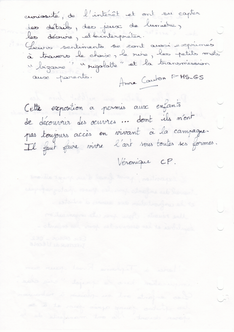 curiosité, de l'intérêt et ont su capter
les détails, des jeux de lumière,
les décors, et
sentiments se sont aussi exprimés
à travers le choix, le noir, les petits mots
"bizarre" "rigolotte" et la transmission
aux parents.
Anne MS.GS
Cette exposition a permis aux enfants
de découvrir des œuvres... dont ils n'ont
pas toujours accès en vivant à la campagne.
Il faut faire vivre l'art sous toutes ses formes.
Véronique CP.